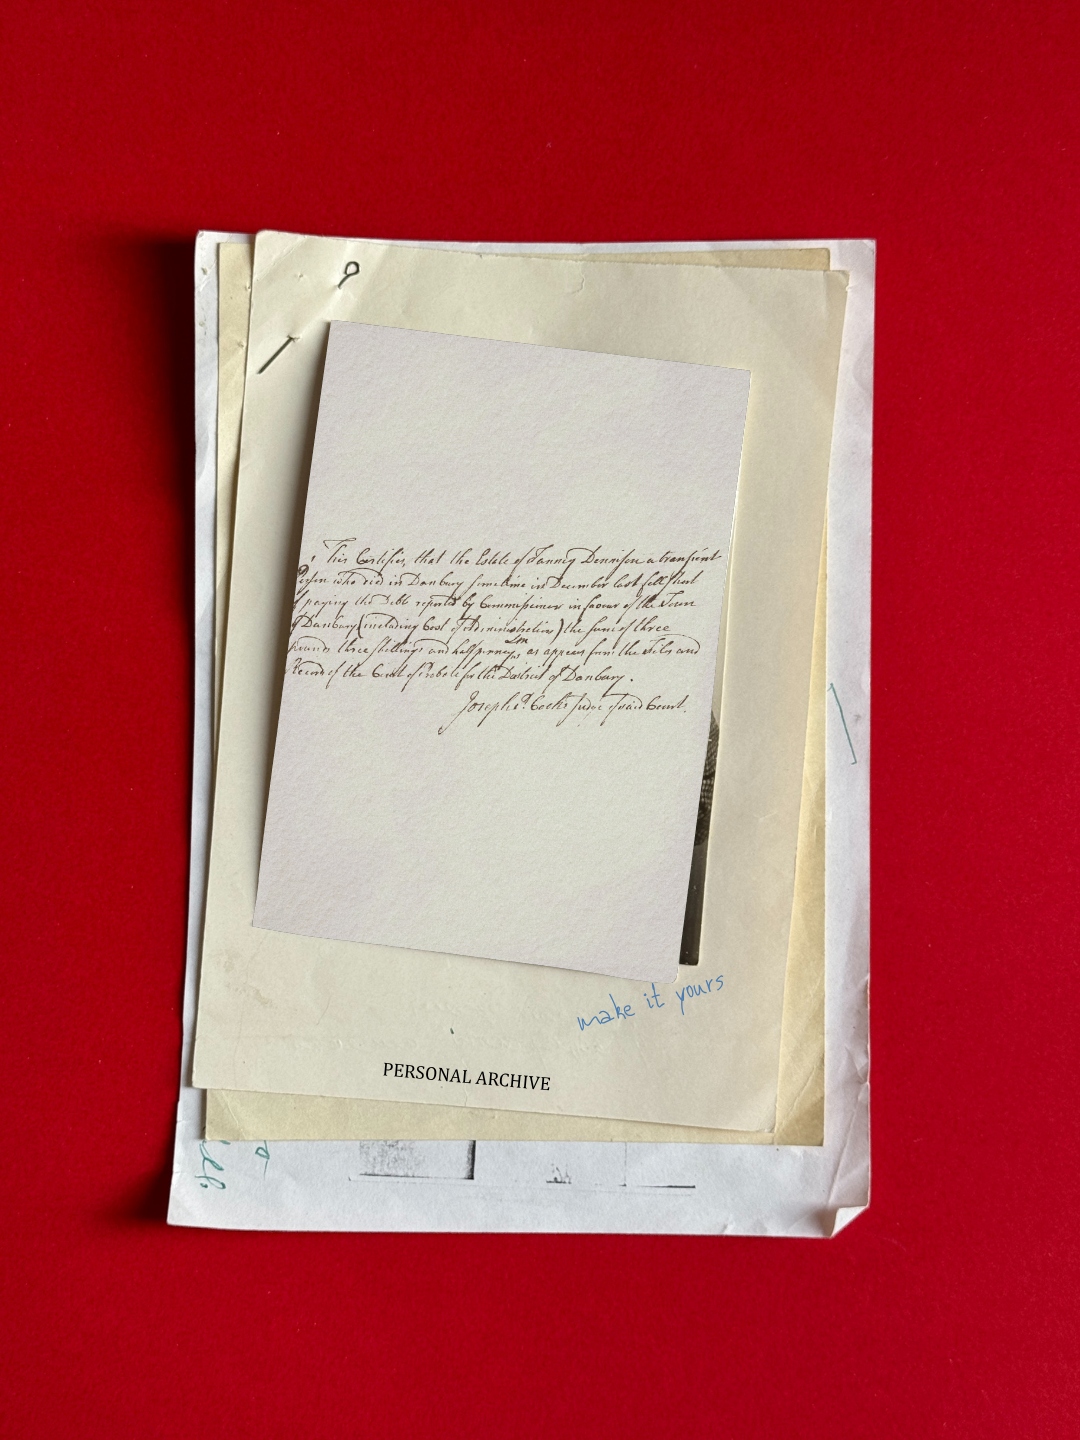 This Certifies, that the Estate of Fanney Dennison a transient
Person who died in Danbury sometime in December last fell short
of paying the Debts reported by Commissioners in favour of the Town
of Danbury (including Cost of Administration) the sum of three
pounds three shillings and half penny as appears from the Files and
Records of the Court of Probate for the District of Danbury.
Joseph P. Cooke Judge of said Court.
make it yours
PERSONAL ARCHIVE